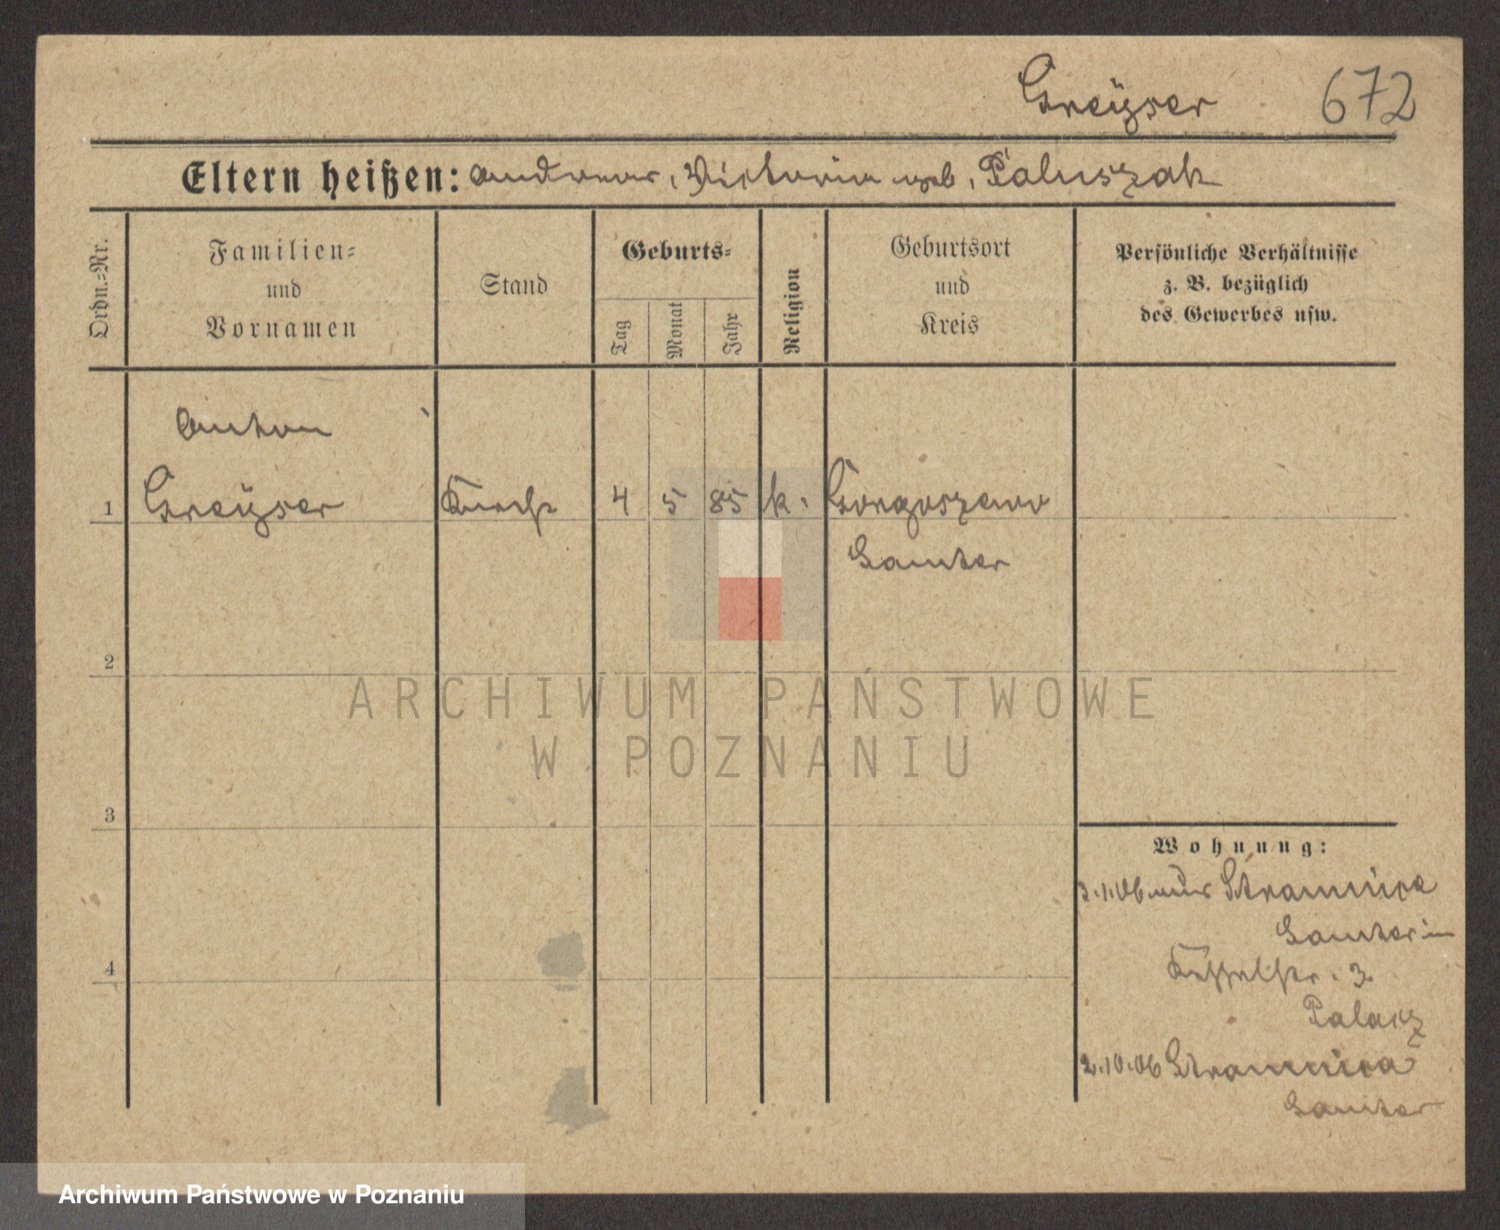 Greÿser 672
Eltern heißen: Andreas, Victoria geb. Paluszak
Ordn.-Nr.
Familien- und Vornamen
Stand
Geburts-
Tag
Monat
Jahr
Religion
Geburtsort und Kreis
Persönliche Verhältnisse z. B. bezüglich des Gewerbes usw.
Anton
1 Greÿser Knecht 4 5 85 k. Gorgoszewo
Samter
2
ARCHIWUM PAŃSTWOWE
W POZNANIU
3
Wohnung:
3.1.06 aus Stramnica
Samter in
str. 3.
Palacz
4
2.10.06 Stramnica
Samter
Archiwum Państwowe w Poznaniu